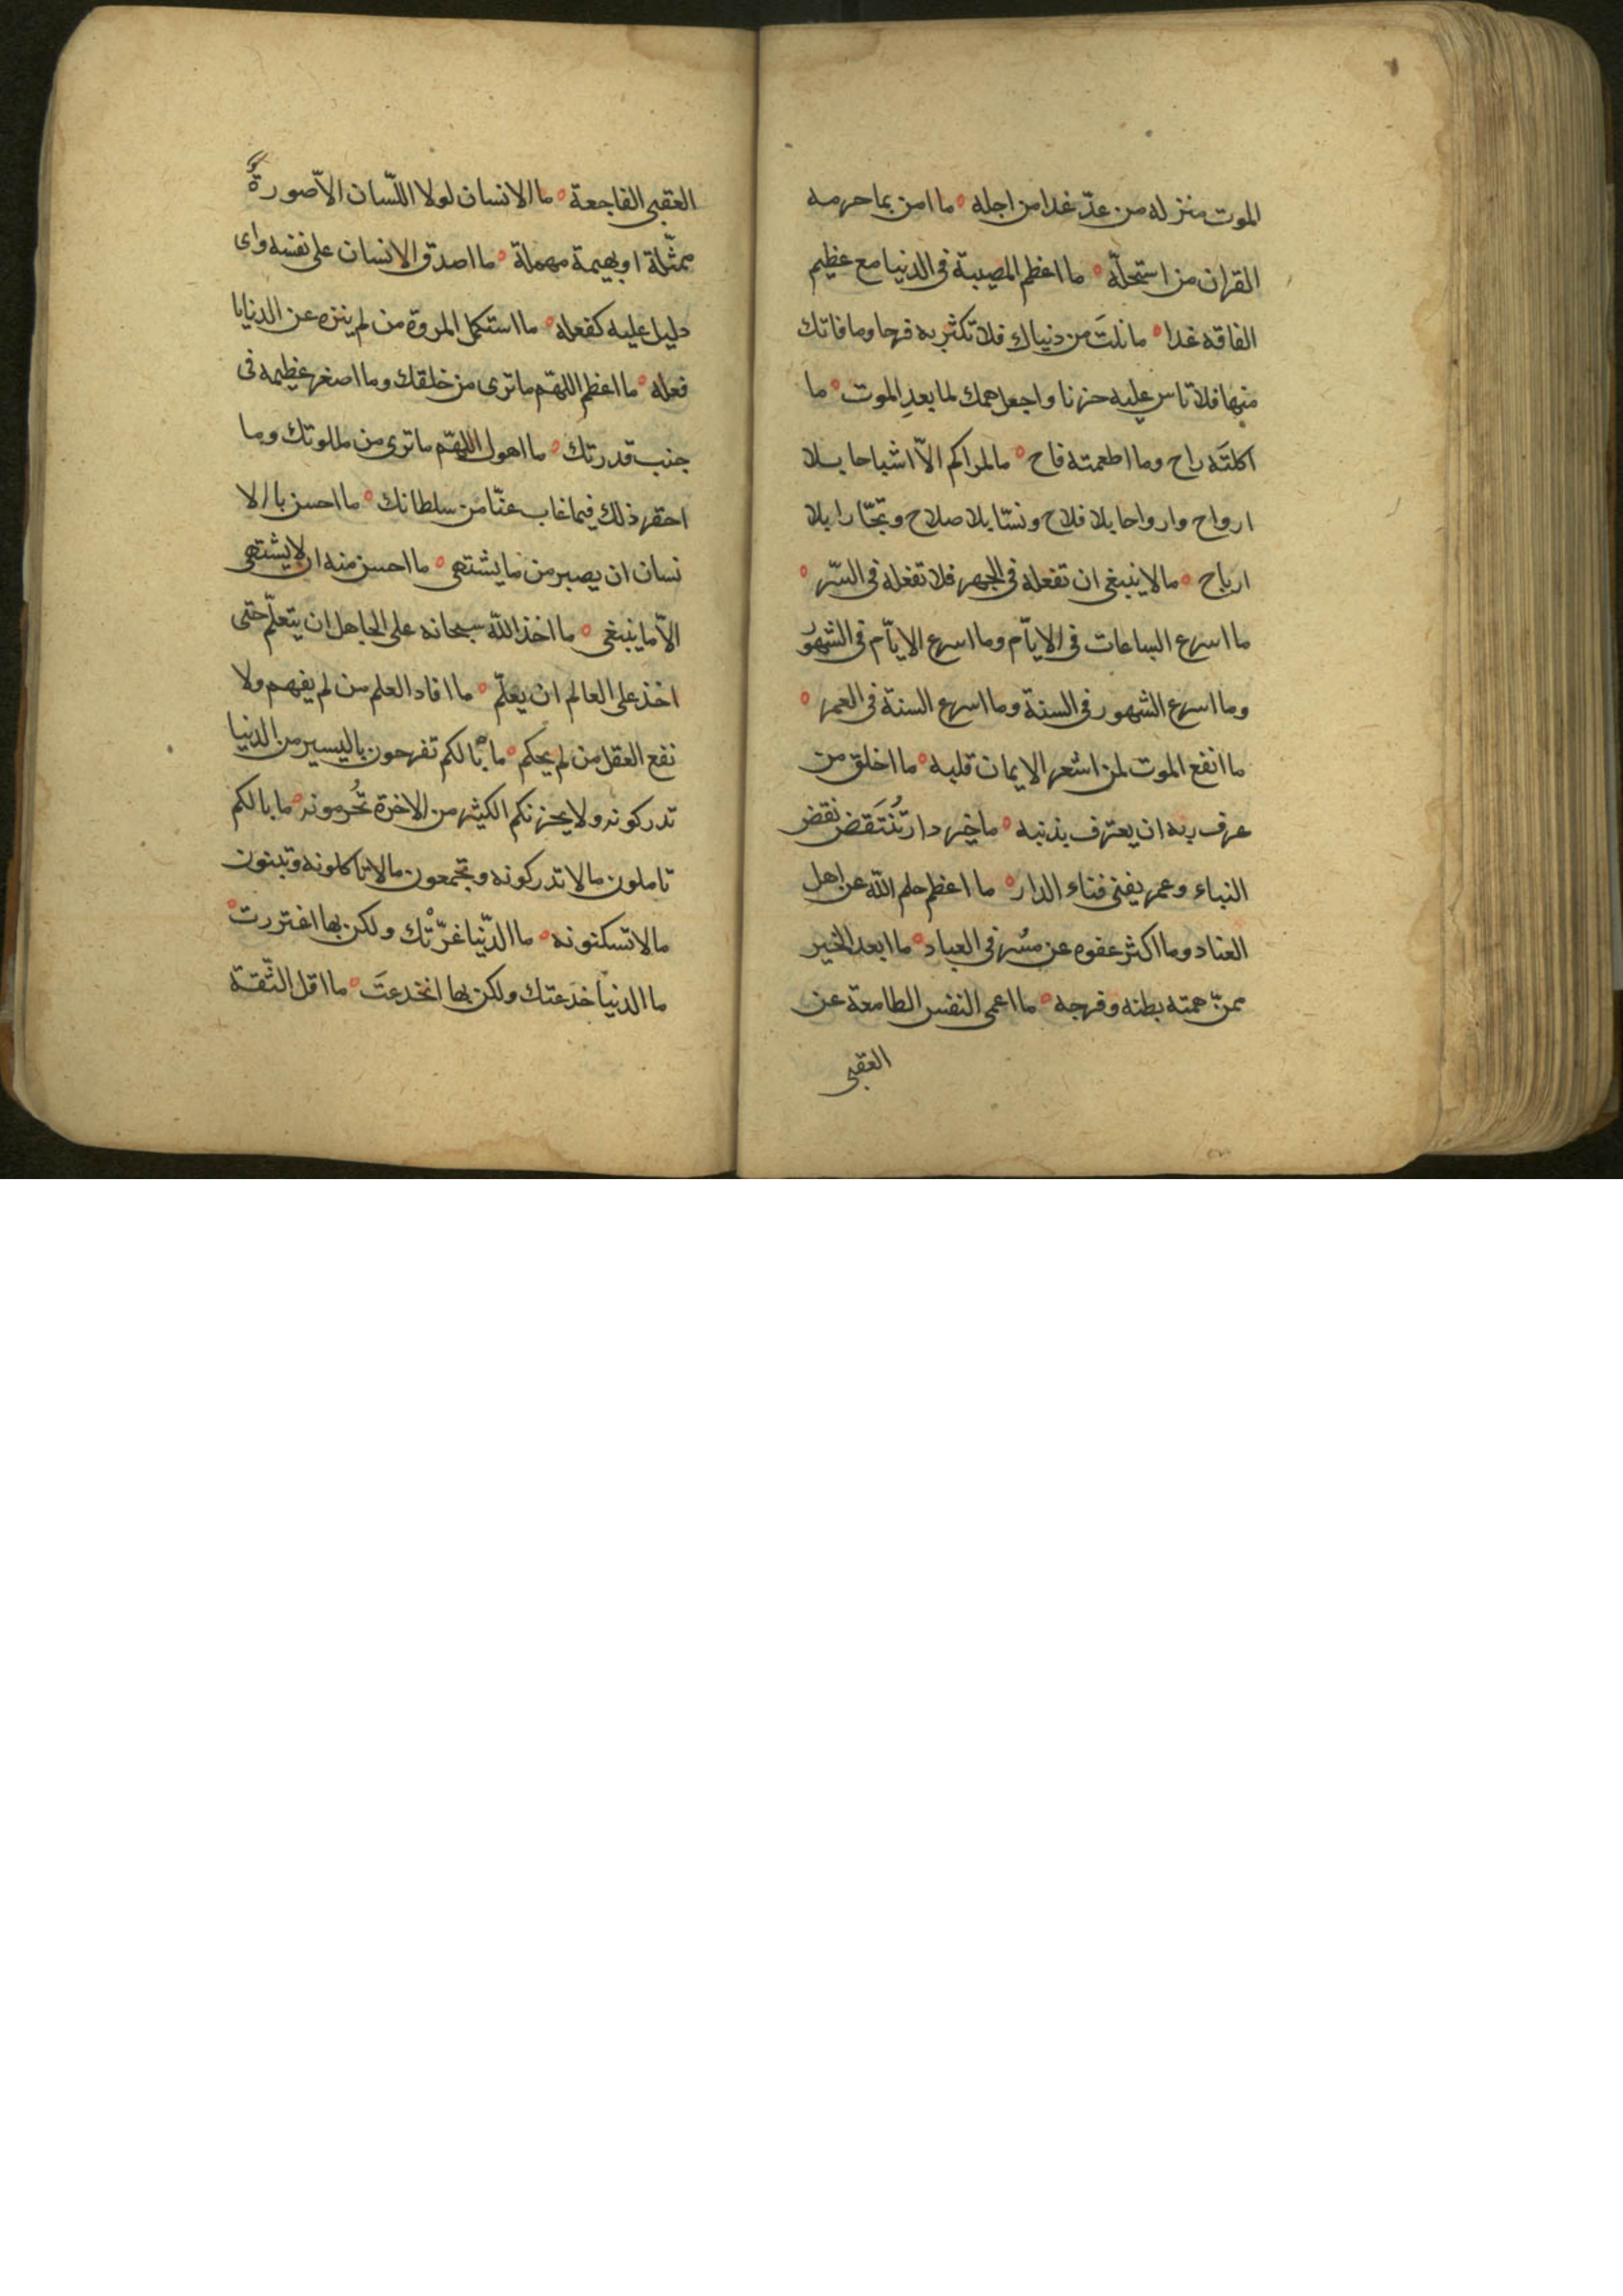 الموت منزله من عدّ غدا من اجله ه ما امن بما حرمه
القران من استحلّه ه ما اعظم المصيبة فى الدنيا مع عظيم
الفاقه غدا ه ما نلتَ من دنياك فلا تكثر به فرحا وما فاتك
منها فلا تاس عليه حزنا واجعل همك لما بعد الموت ه ما
اكلتَه راح وما اطعمته فاح ه مالى اراكم الاّ اشباحا بلا
ارواح وارواحا بلا فلاح ونسّا بلا صلاح وتجّارا بلا
ارباح ه ما لا ينبغى ان تفعله فى الجهر فلا تفعله فى السّر ه
ما اسرع الساعات فى الايّام وما اسرع الايّام فى الشهوُر
وما اسرع الشهور فى السنة وما اسرع السنة فى العمر ه
ما انفع الموت لمن اشعر الايمان قلبه ه ما اخلق من
عرف ربه ان يعترف بذنبه ه ما خير دار تُنتَقَض نقض
البناء وعمر يفنى فناء الدار ه ما اعظم حلم الله عن اهل
العناد وما اكثر عفوه عن مسُرفى العباد ه ما ابعد الخير
ممنّ همته بطنه وفرجه ه ما اعمى النفس الطامعة عن
العقبى
العقبى الفاجعة ه ما الانسان لولا اللّسان الاّ صورةٌ
ممثّلة او بهيمة مهملة ه ما اصدق الانسان على نفسه واى
دليل عليه كفعله ه ما استكمل المروة من لم ينزه عن الدنايا
فعله ه ما اعظم اللهمّ ما ترى من خلقك وما اصغر عظيمه فى
جنب قدرتك ه ما اهول اللهمّ ما ترى من ملكوتك وما
احقر ذلك فيما غاب عنّا من سلطانك ه ما احسن بالا
نسان ان يصبر من ما يشتهى ه ما احسن منه ان لا يشتهى
الاّ ما ينبغى ه ما اخذ الله سبحانه على الجاهل ان يتعلّم حتى
اخذ على العالم ان يعلّم ه ما افاد العلم من لم يفهم ولا
نفع العقل من لم يحكم ه ما بالكم تفرحون باليسير من الدنيا
تدركونه ولا يحزنكم الكثير من الاخرة تُحُرمونه ه ما بالكم
تاملون ما لا تدركونه وتجمعون ما لا تاكلونه وتبنون
ما لا تسكنونه ه ما الدّنيا غرّتْك ولكن بها اغتررت ه
ما الدنيا خدَعتك ولكن بها انخدعتَ ه ما اقل الثّقة